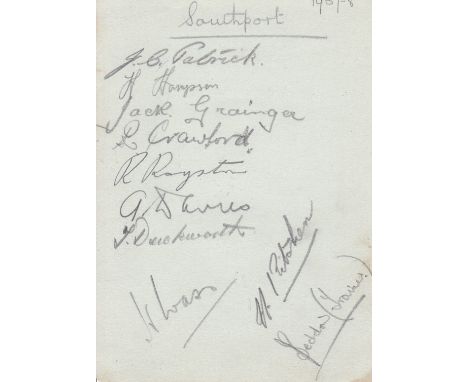 Southport
J. C. Patrick.
H Hampson
Jack Grainger
Crawford
R Royston
G. Davies
T. Duckworth
Wass
Seddon (Trainer)